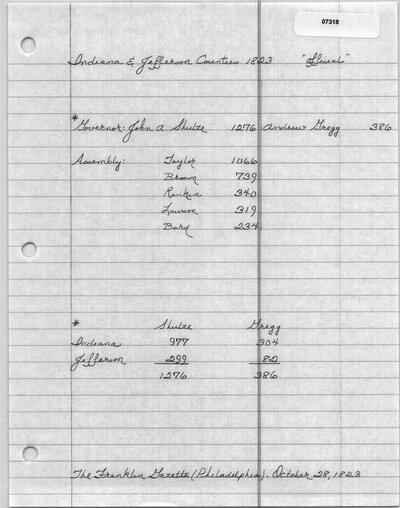 07318
Indiana & Jefferson Counties 1823 "official"
* Governor: John A. Shulze 1276 Andrew Gregg 386
Assembly: Taylor 1066
Brown 739
Rankin 340
Lawson 319
Bard 234
* Shulze Gregg
Indiana 977 304
Jefferson 299 82
1276 386
The Franklin Gazette (Philadelphia). October 28, 1823